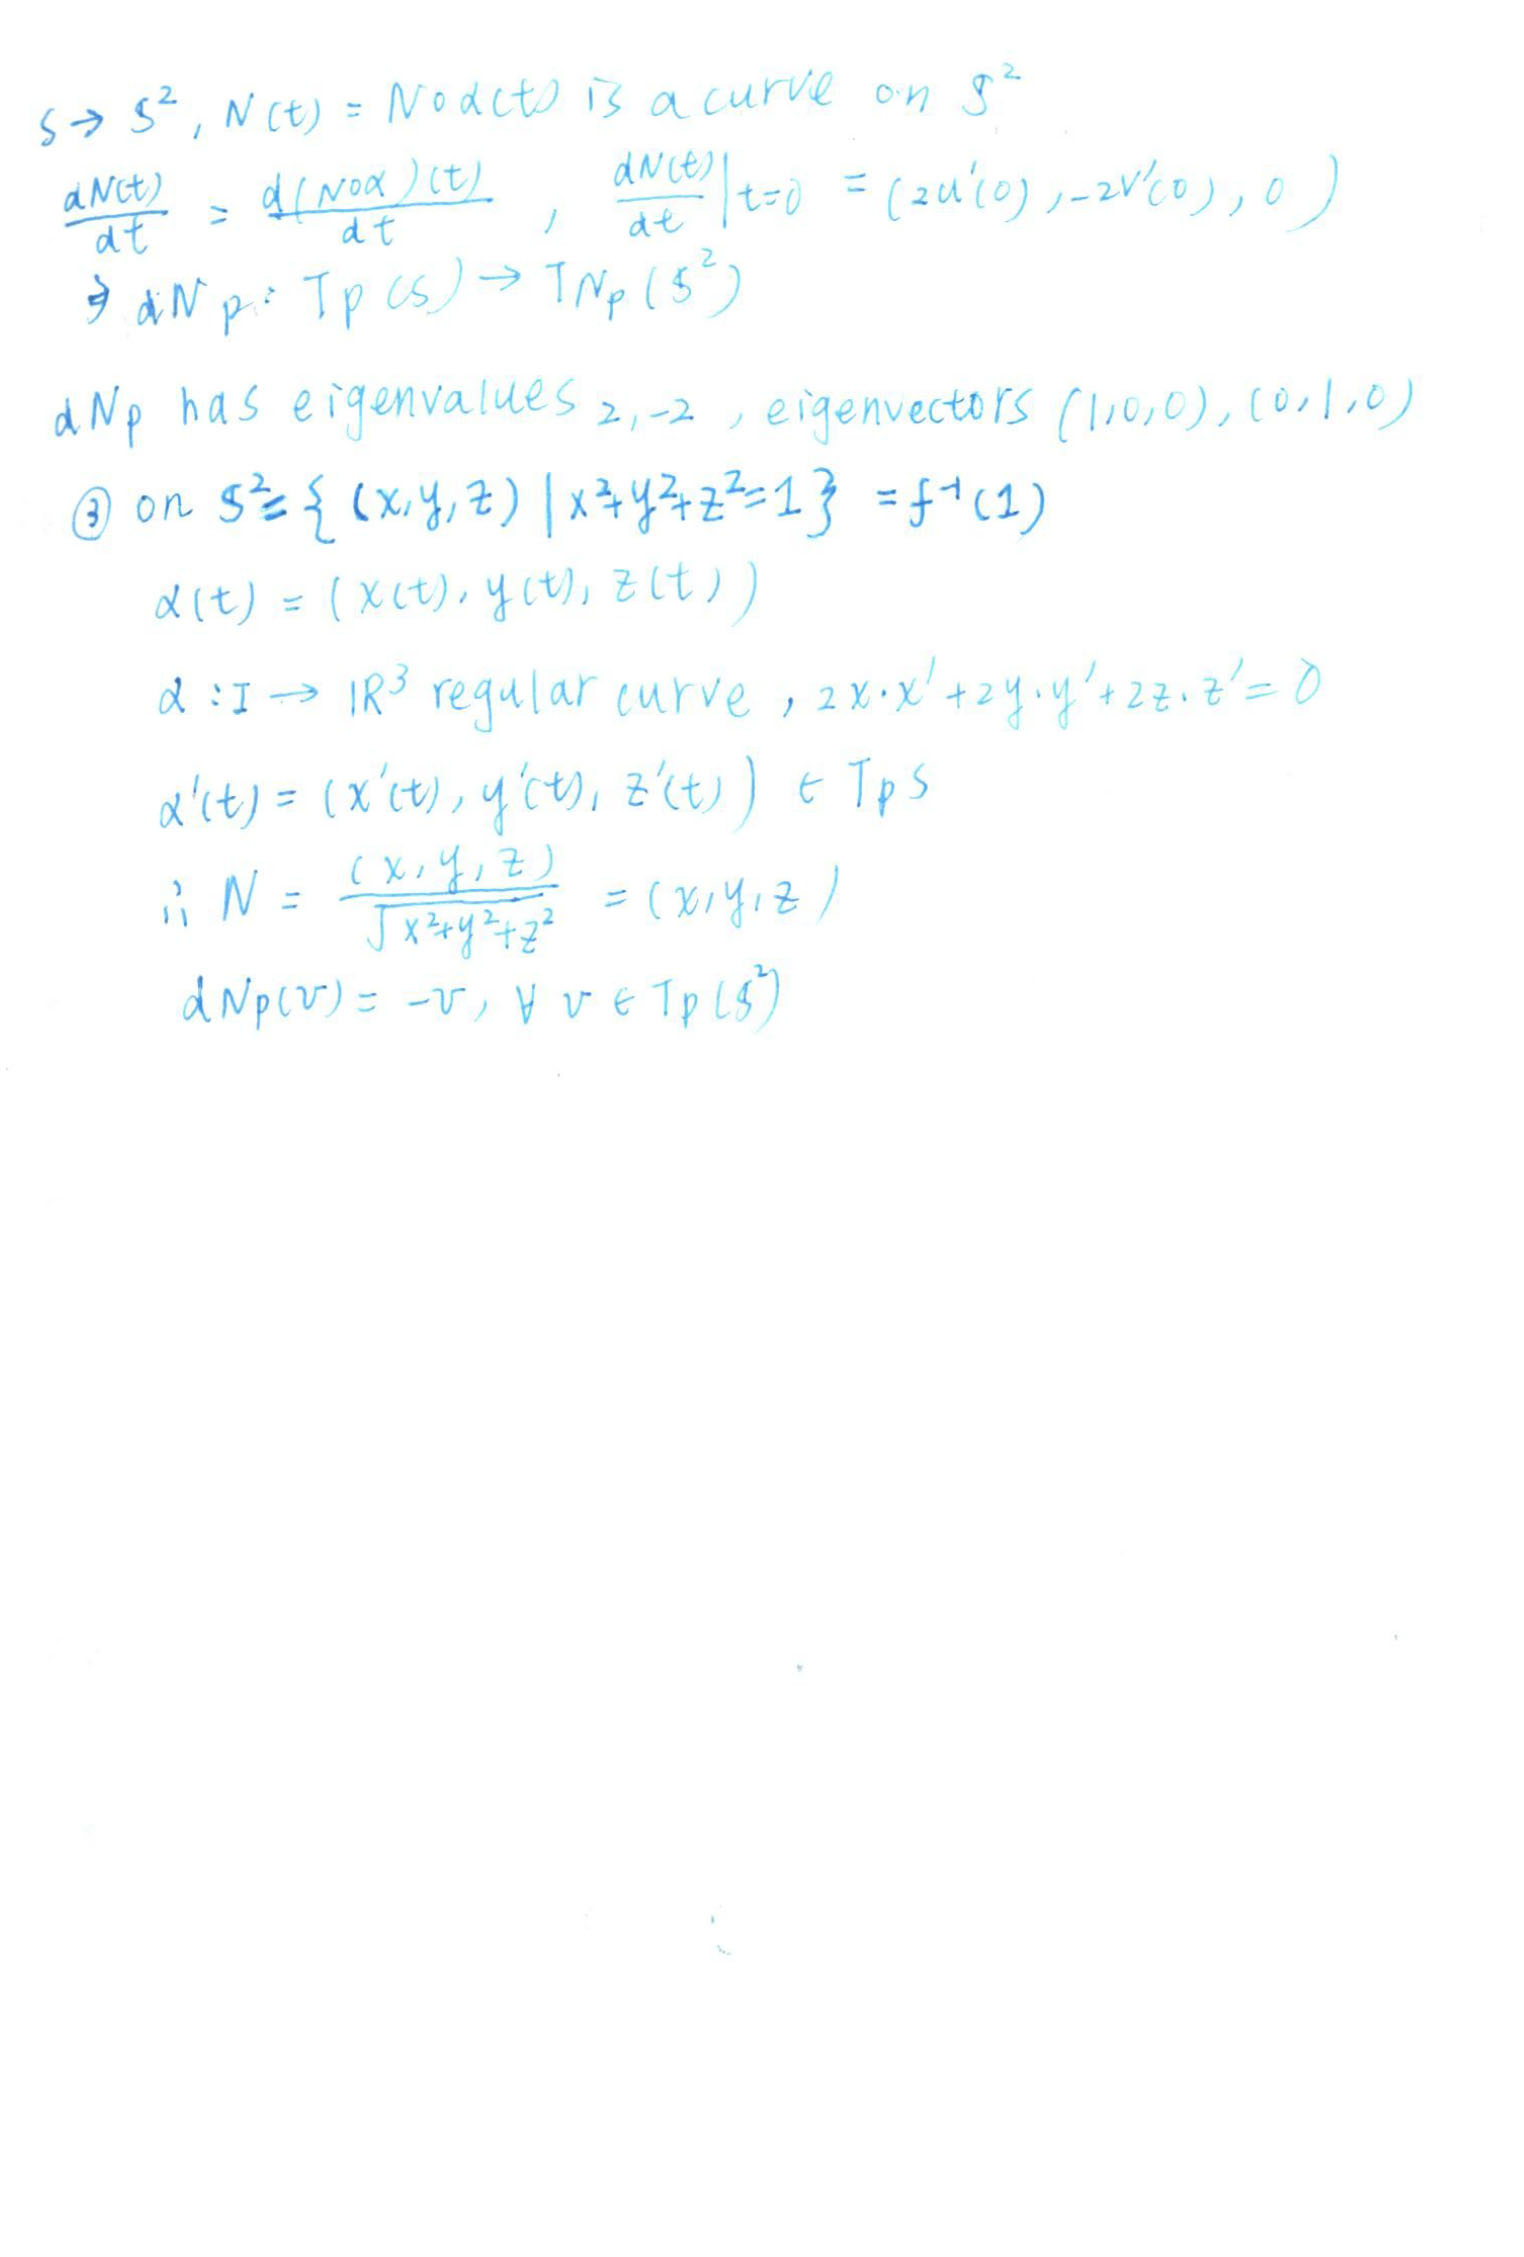 S → S², N(t) = N∘α(t) is a curve on S²
dN(t)/dt = d(N∘α)(t)/dt , dN(t)/dt |t=0 = (2u'(0), -2v'(0), 0)
⇒ dNp: Tp(S) → TNp(S²)
dNp has eigenvalues 2,-2 , eigenvectors (1,0,0), (0,1,0)
③ on S² = { (x,y,z) | x²+y²+z²=1 } = f⁻¹(1)
α(t) = (x(t), y(t), z(t))
α : I → ℝ³ regular curve , 2x·x' + 2y·y' + 2z·z' = 0
α'(t) = (x'(t), y'(t), z'(t)) ∈ TpS
∴ N = (x,y,z)/√x²+y²+z² = (x,y,z)
dNp(v) = -v, ∀ v ∈ Tp(S²)